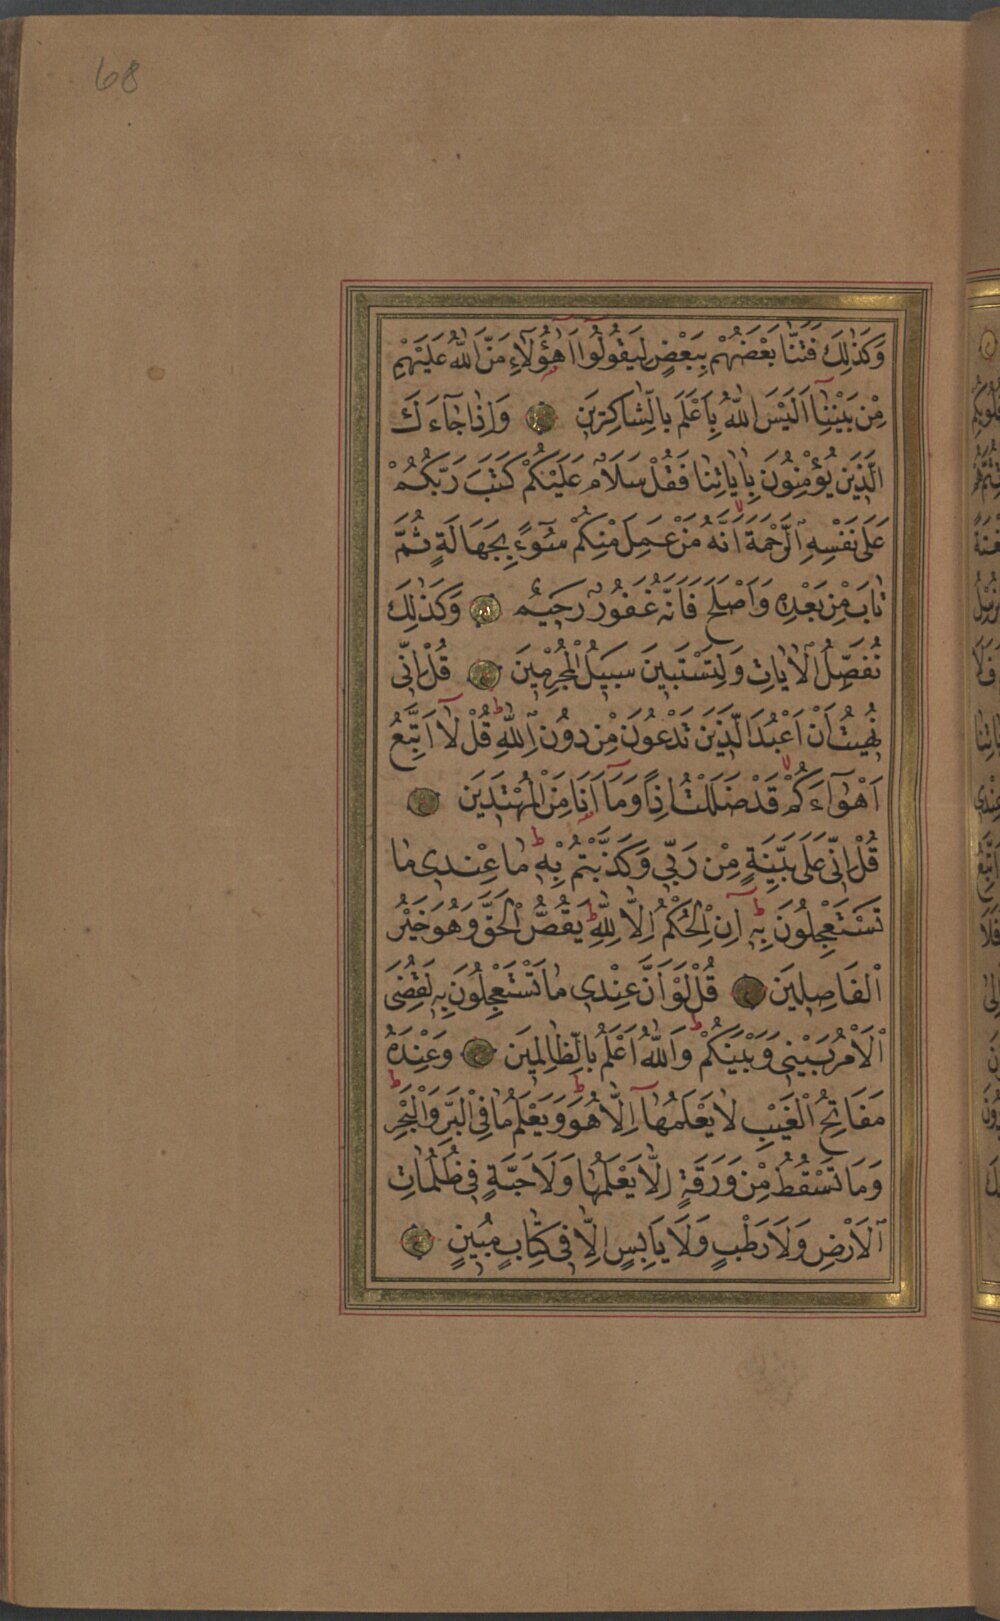 68
وَكَذٰلِكَ فَتَنَّا بَعْضَهُمْ بِبَعْضٍ لِيَقُولُوٓا اَهٰٓؤُلَآءِ مَنَّ اللّٰهُ عَلَيْهِمْ
مِنْ بَيْنِنَآ اَلَيْسَ اللّٰهُ بِاَعْلَمَ بِالشَّاكِرِينَ وَاِذَا جَآءَكَ
الَّذِينَ يُؤْمِنُونَ بِاٰيَاتِنَا فَقُلْ سَلَامٌ عَلَيْكُمْ كَتَبَ رَبُّكُمْ
عَلَى نَفْسِهِ الرَّحْمَةَ اَنَّهُ مَنْ عَمِلَ مِنْكُمْ سُوٓءًا بِجَهَالَةٍ ثُمَّ
تَابَ مِنْ بَعْدِهِ وَاَصْلَحَ فَاَنَّهُ غَفُورٌ رَحِيمٌ وَكَذٰلِكَ
نُفَصِّلُ الْاٰيَاتِ وَلِتَسْتَبِينَ سَبِيلُ الْمُجْرِمِينَ قُلْ اِنِّى
نُهِيتُ اَنْ اَعْبُدَ الَّذِينَ تَدْعُونَ مِنْ دُونِ اللّٰهِ قُلْ لَآ اَتَّبِعُ
اَهْوَآءَكُمْ قَدْ ضَلَلْتُ اِذًا وَمَآ اَنَا مِنَ الْمُهْتَدِينَ
قُلْ اِنِّى عَلَى بَيِّنَةٍ مِنْ رَبِّى وَكَذَّبْتُمْ بِهِ مَا عِنْدِى مَا
تَسْتَعْجِلُونَ بِهِ اِنِ الْحُكْمُ اِلَّا لِلّٰهِ يَقُصُّ الْحَقَّ وَهُوَ خَيْرُ
الْفَاصِلِينَ قُلْ لَوْ اَنَّ عِنْدِى مَا تَسْتَعْجِلُونَ بِهِ لَقُضِىَ
الْاَمْرُ بَيْنِى وَبَيْنَكُمْ وَاللّٰهُ اَعْلَمُ بِالظَّالِمِينَ وَعِنْدَهُ
مَفَاتِحُ الْغَيْبِ لَا يَعْلَمُهَآ اِلَّا هُوَ وَيَعْلَمُ مَا فِى الْبَرِّ وَالْبَحْرِ
وَمَا تَسْقُطُ مِنْ وَرَقَةٍ اِلَّا يَعْلَمُهَا وَلَا حَبَّةٍ فِى ظُلُمَاتِ
الْاَرْضِ وَلَا رَطْبٍ وَلَا يَابِسٍ اِلَّا فِى كِتَابٍ مُبِينٍ